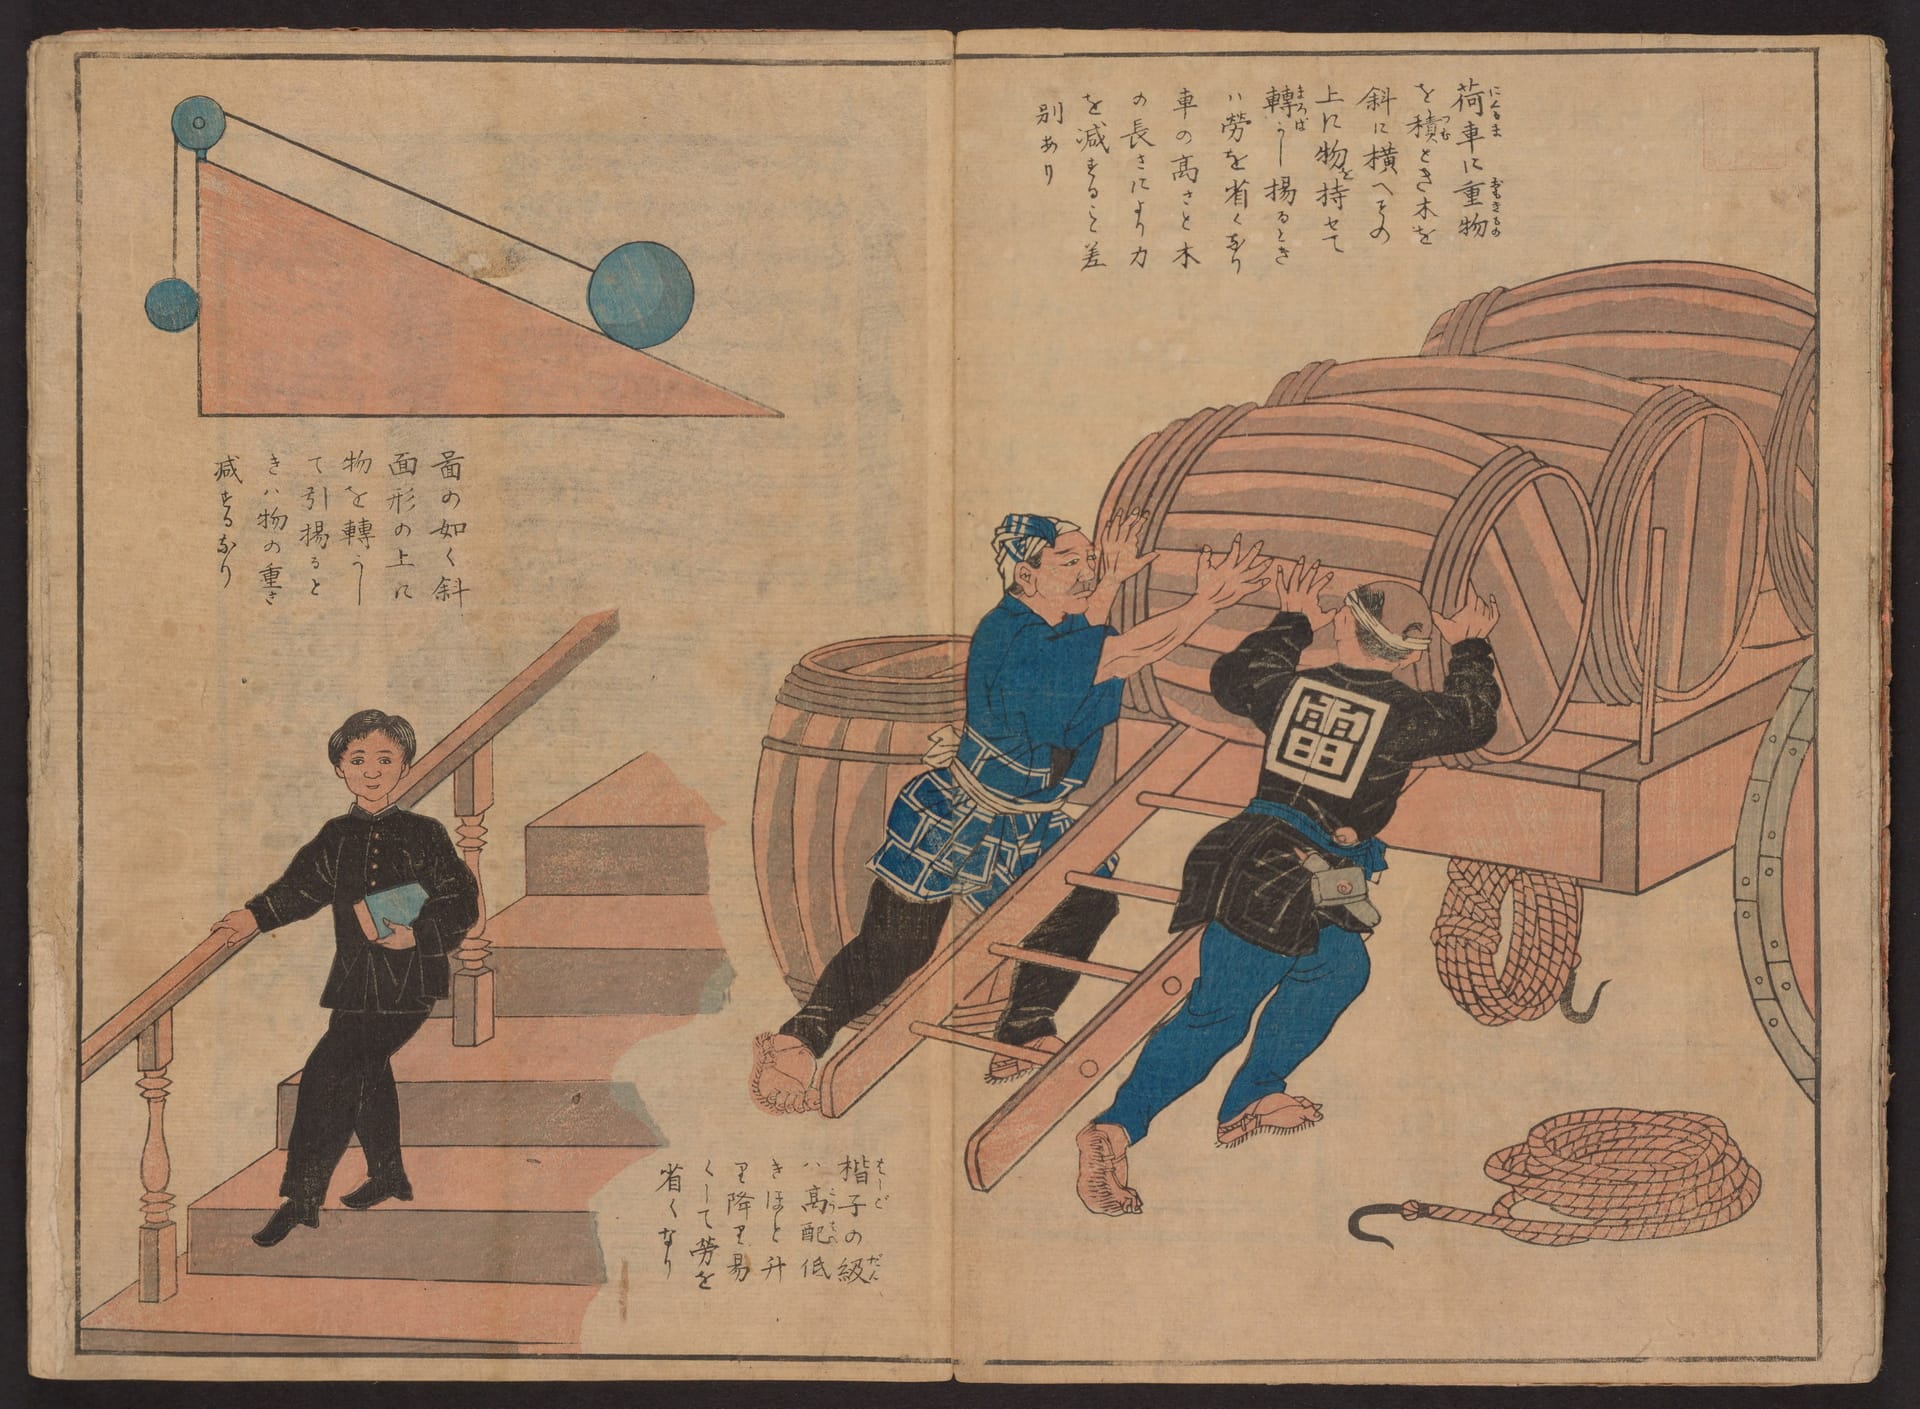 荷車に重物
を積とき木を
斜に横へその
上に物を持せて
轉うし揚るとき
ハ勞を省くなり
車の髙さと木
の長さにより力
を減ずること差
別あり
圖の如く斜
面形の上に
物を轉うし
て引揚ると
きハ物の重さ
減ずるなり
楷子の級
ハ髙配低
きほど升
り降り易
くして勞を
省くなり